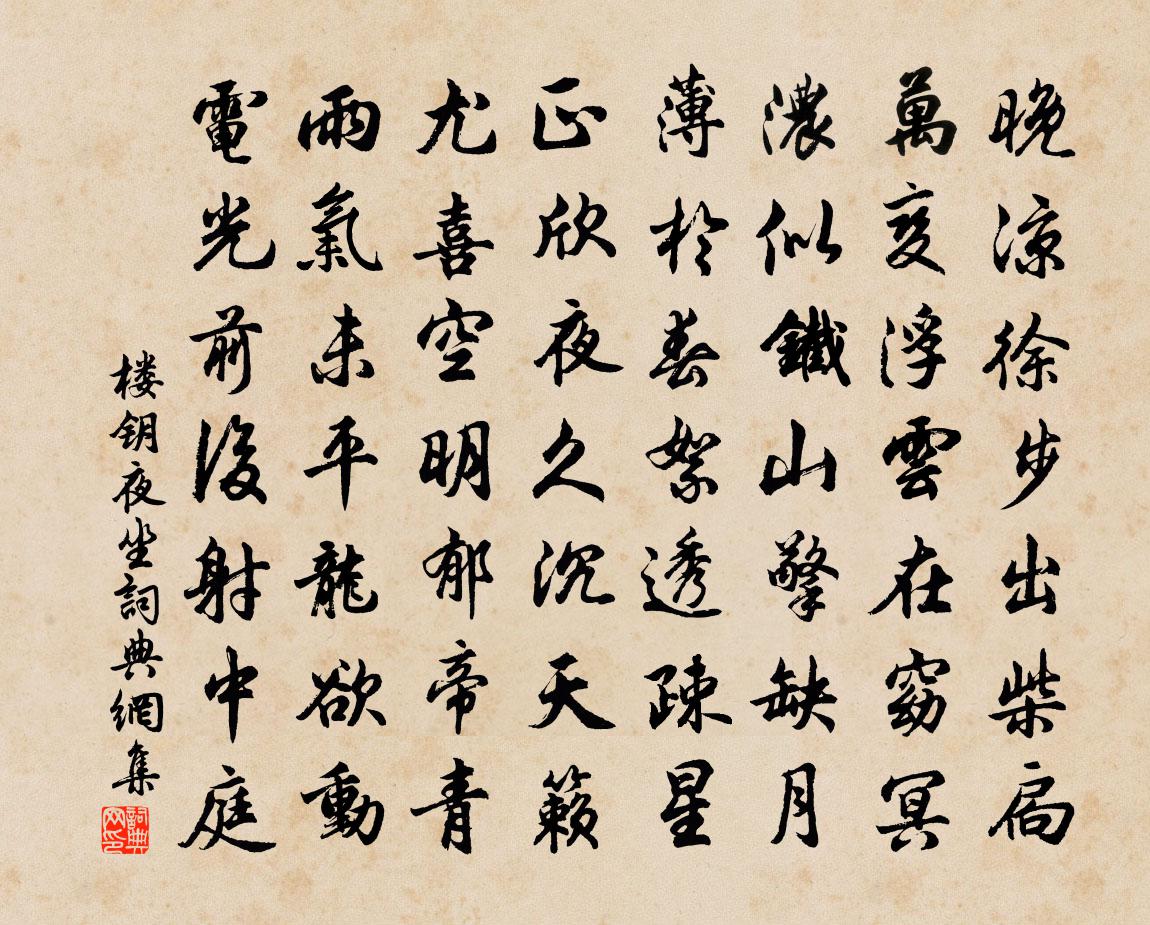 晚涼徐步出柴扃
萬変浮雲在窈冥
濃似鐵山擎缺月
薄於春絮透疎星
正欣夜久沉天籟
尤喜空明郁帝青
雨氣未平龍欲動
電光前後射中庭
楼钥夜坐詞典網集
詞典网印